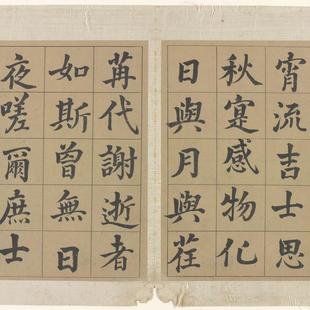 宵流吉士思
秋寔感物化
日與月與荏
苒代謝逝者
如斯曾無日
夜嗟爾庶士